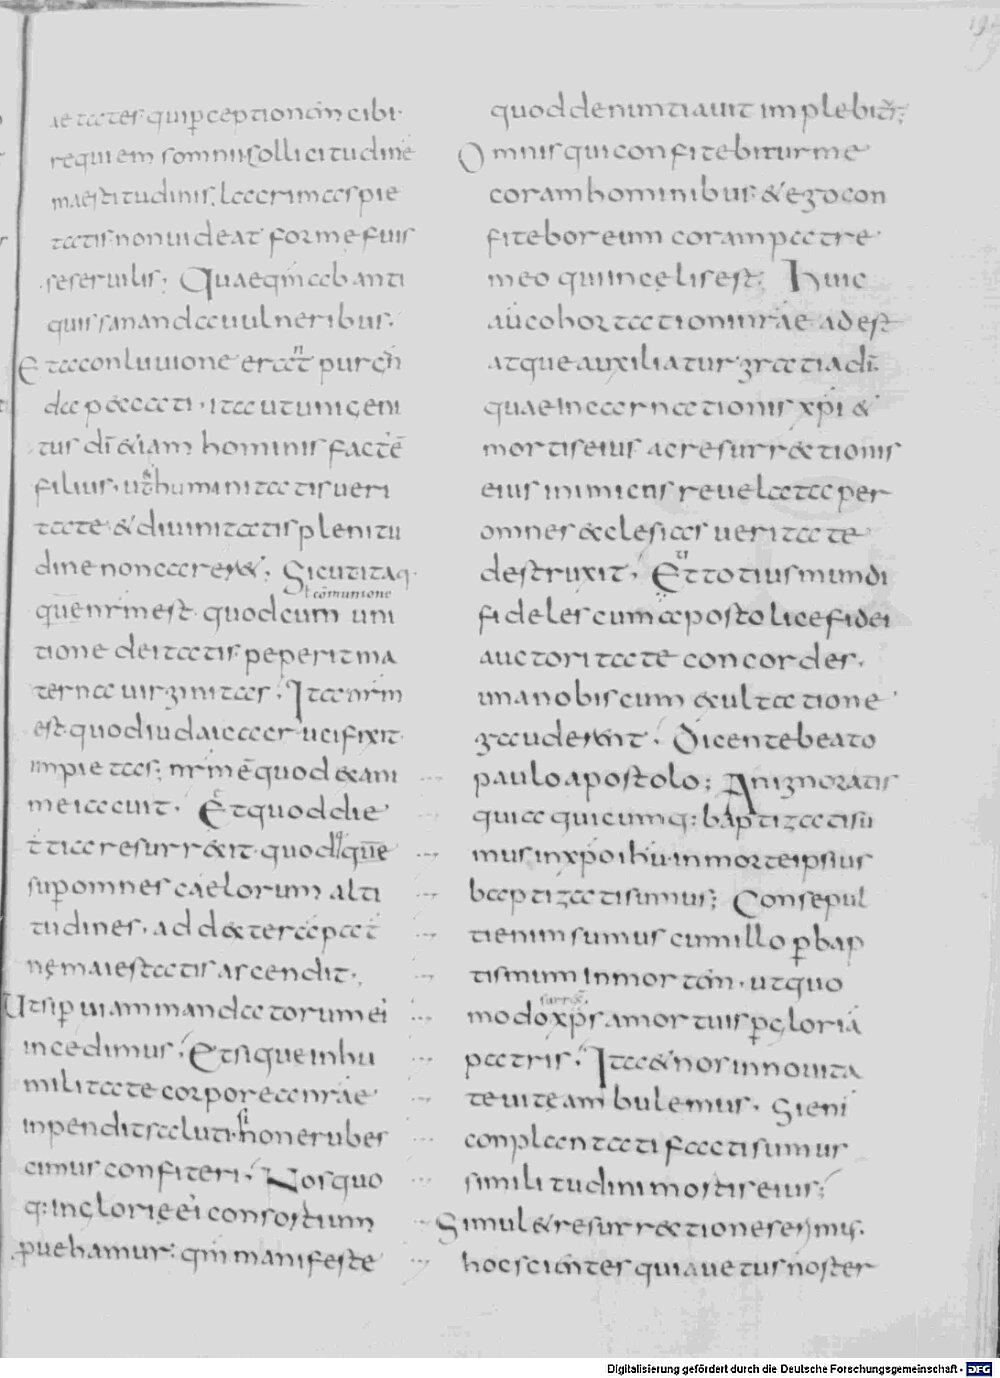 aetates quip ceptionem cibi.
requiem somni sollicitudinē
maestitudinis. lacrimas pie
tatis. non uideat formę suis
se seruilis; Quae qm̄ ab anti
quis sananda uulneribus.
Et a conluuione erat purgan
da peccati. ita ut unigeni
tus dī & iam hominis factē
filius. ut & humanitatis ueri
tate & diuinitatis plenitu
dine non careret; Sicut itaq.
t cōmunione
quē nr̄m est. quod cum uni
tione deitatis peperit ma
terna uirginitas. Ita nr̄m
est quod iudaica crucifixit
impietas; nr̄m ē quod exani
me iacuit. Et quod die
tertia resurrexit. quodq; quē
sup omnes caelorum alti
tudines. ad dexteram pat
nę maiestatis ascendit;
Ut si p uiam mandatorum ei
incedimus; Et si que in hu
militate corporea nr̄ae
inpendit saluti. si non erubes
cimus confiteri; Nos quo
q: in glorię ei consortium
puehamur: qm̄ manifeste
quod denuntiauit implebitur;
Omnis qui confitebitur me
coram hominibus. & ego con
fitebor eum coram patre
meo qui in cęlis est; Huic
au cohortationi nr̄ae adest
atque auxiliatur gratia di.
quae incarnationis xp̄i &
mortis eius ac resurrectionis
eius inimicus reuelata per
omnes ecclesias ueritate
destruxit; Et totius mundi
fideles cum apostolice fidei
auctoritate concordes.
una nobiscum exultatione
gauderent. Dicente beato
paulo apostolo; An ignoratis
quia quicumq: baptizati su
mus in xp̄o ihū. in morte ipsius
baptizati sumus; Consepul
ti enim sumus cum illo p bap
tismum in mortem. ut quo
surrex
modo xp̄s a mortuis p gloria
patris. Ita & nos in nouita
te uite ambulemus. Si eni
complantati facti sumus
similitudini mortis eius;
Simul & resurrectiones erimus.
hoc scientes quia uetus noster
Digitalisierung gefördert durch die Deutsche Forschungsgemeinschaft - DFG